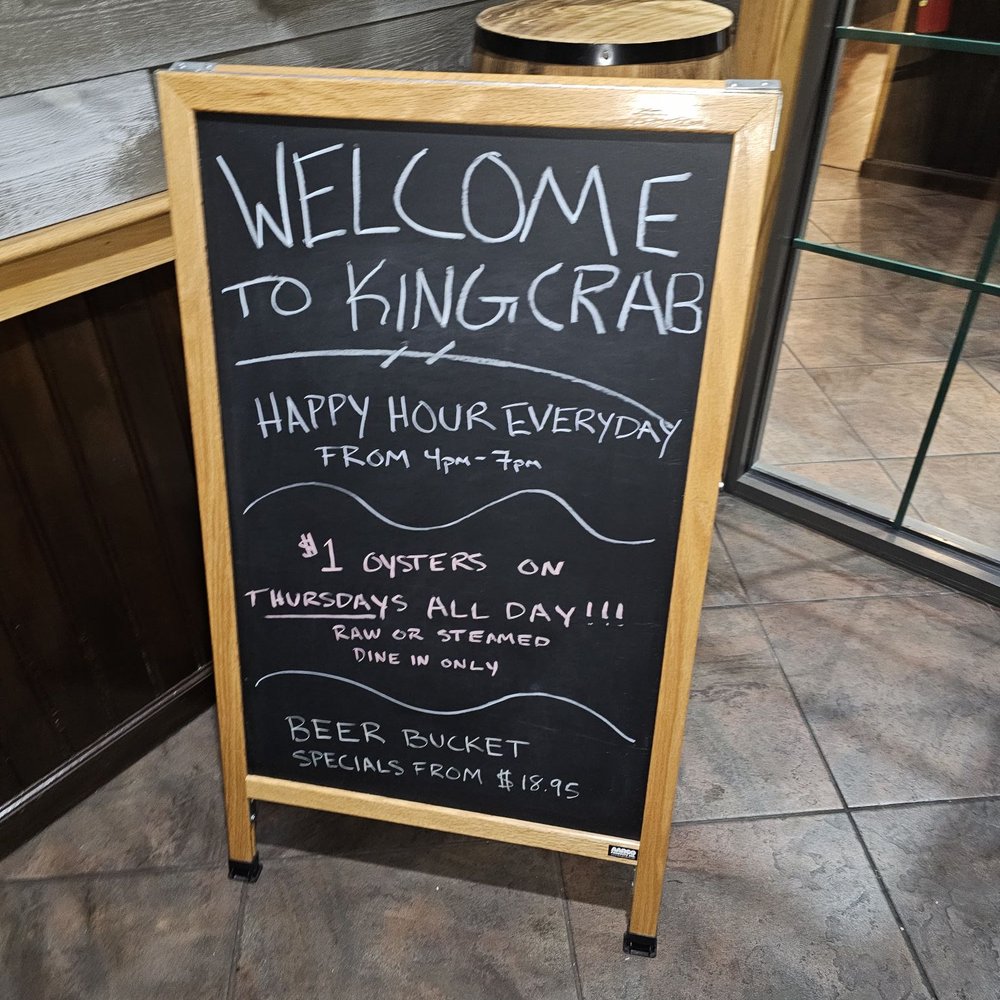 WELCOME
TO KING CRAB
HAPPY HOUR EVERYDAY
FROM 4PM-7PM
$1 OYSTERS ON
THURSDAYS ALL DAY!!!
RAW OR STEAMED
DINE IN ONLY
BEER BUCKET
SPECIALS FROM $18.95
AARCO